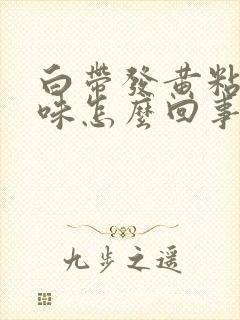 白帶發黃粘
味怎麼回事
九步之遥